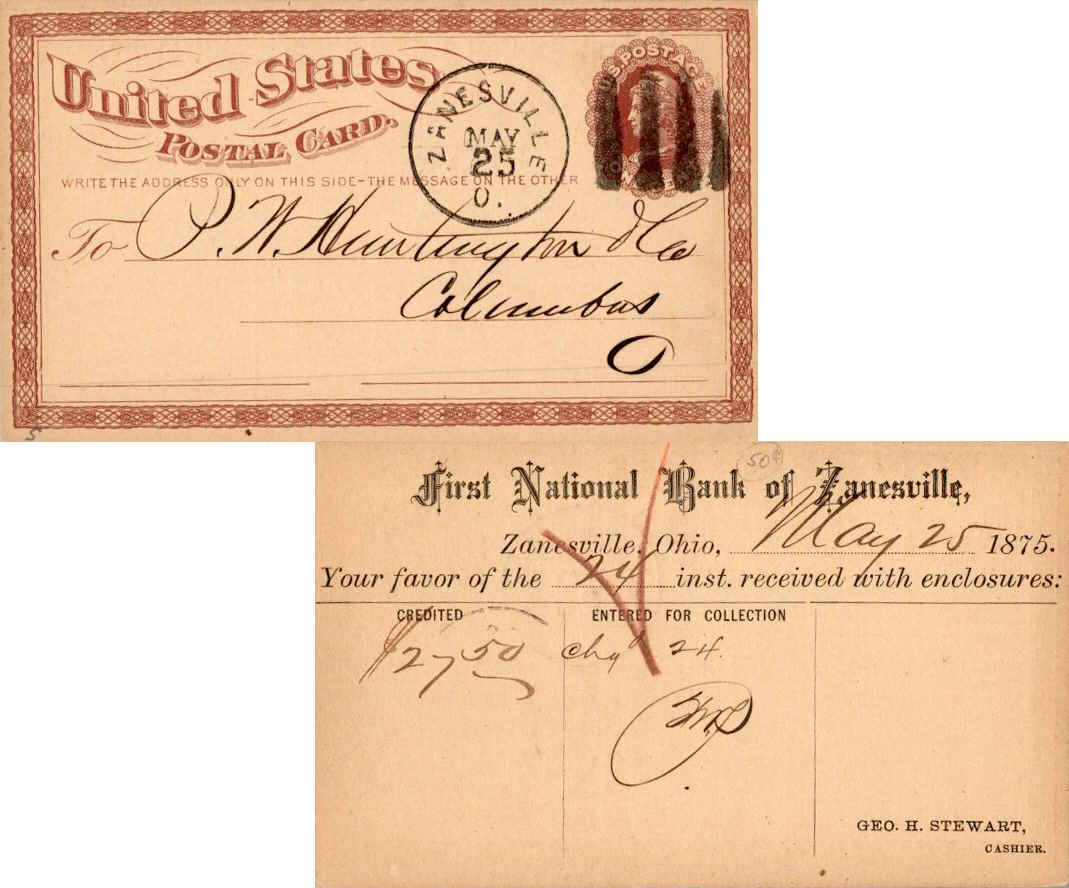 United States
POSTAL CARD.
U.S. POSTAGE
WRITE THE ADDRESS ONLY ON THIS SIDE-THE MESSAGE ON THE OTHER
ZANESVILLE
MAY
25
O.
To P. W. Huntington & Co
Columbus
O
5
50¢
First National Bank of Zanesville,
Zanesville, Ohio, May 25 1875.
Your favor of the 24 inst. received with enclosures:
CREDITED ENTERED FOR COLLECTION
$27 50 chg 24.
GEO. H. STEWART,
CASHIER.